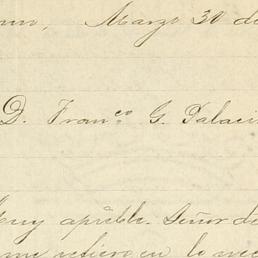 Marzo 30 de
D. Franco G. Palaci
Muy apible. Señor de
me refiero en lo